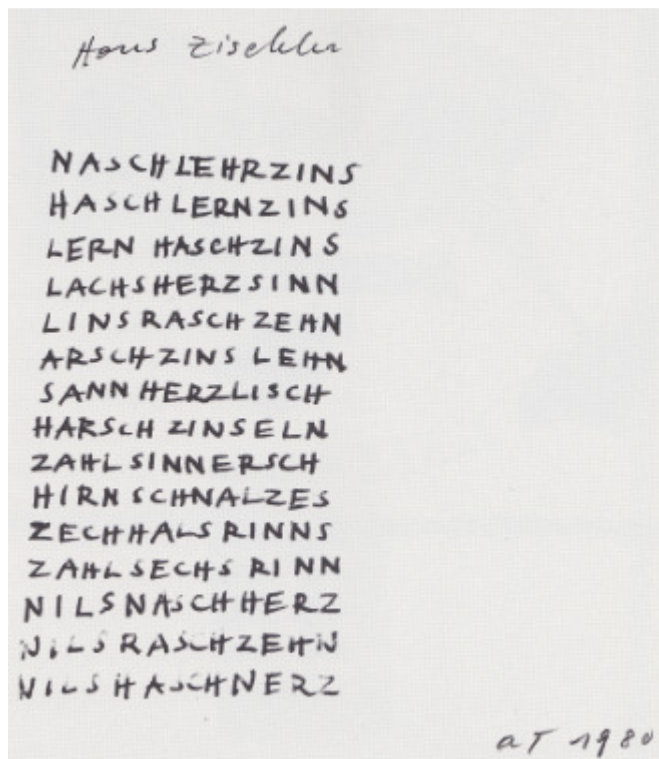 Hans Zischler
NASCHLEHRZINS
HASCH LERNZINS
LERN HASCHZINS
LACHSHERZSINN
LINSRASCHZEHN
ARSCHZINS LEHN
SANN HERZLISCH
HARSCH ZINSELN
ZAHLSINNERSCH
HIRN SCHNALZES
ZECHHALS RINNS
ZAHLSECHS RINN
NILSNASCHHERZ
NILS RASCHZEHN
NILS HASCHNERZ
aT 1980